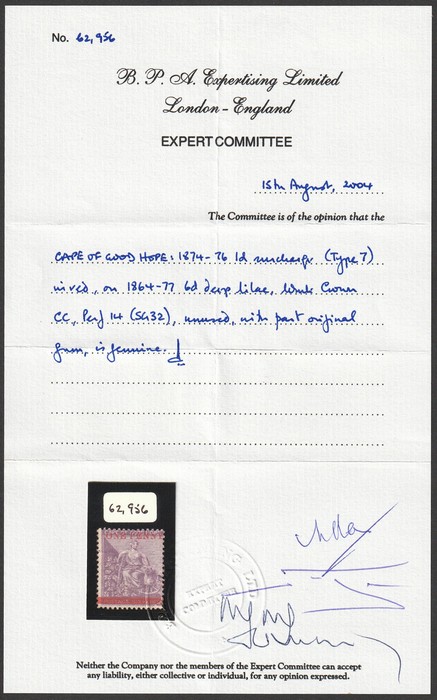 No. 62,956
B. P. A. Expertising Limited
London - England
EXPERT COMMITTEE
15th August, 2004
The Committee is of the opinion that the
CAPE OF GOOD HOPE: 1874-76 1d surcharge (Type 7)
in red, on 1864-77 6d deep lilac, Wmk Crown
CC, Perf 14 (SG32), unused, with part original
gum, is genuine.
62,956
ONE PENNY
Neither the Company nor the members of the Expert Committee can accept
any liability, either collective or individual, for any opinion expressed.